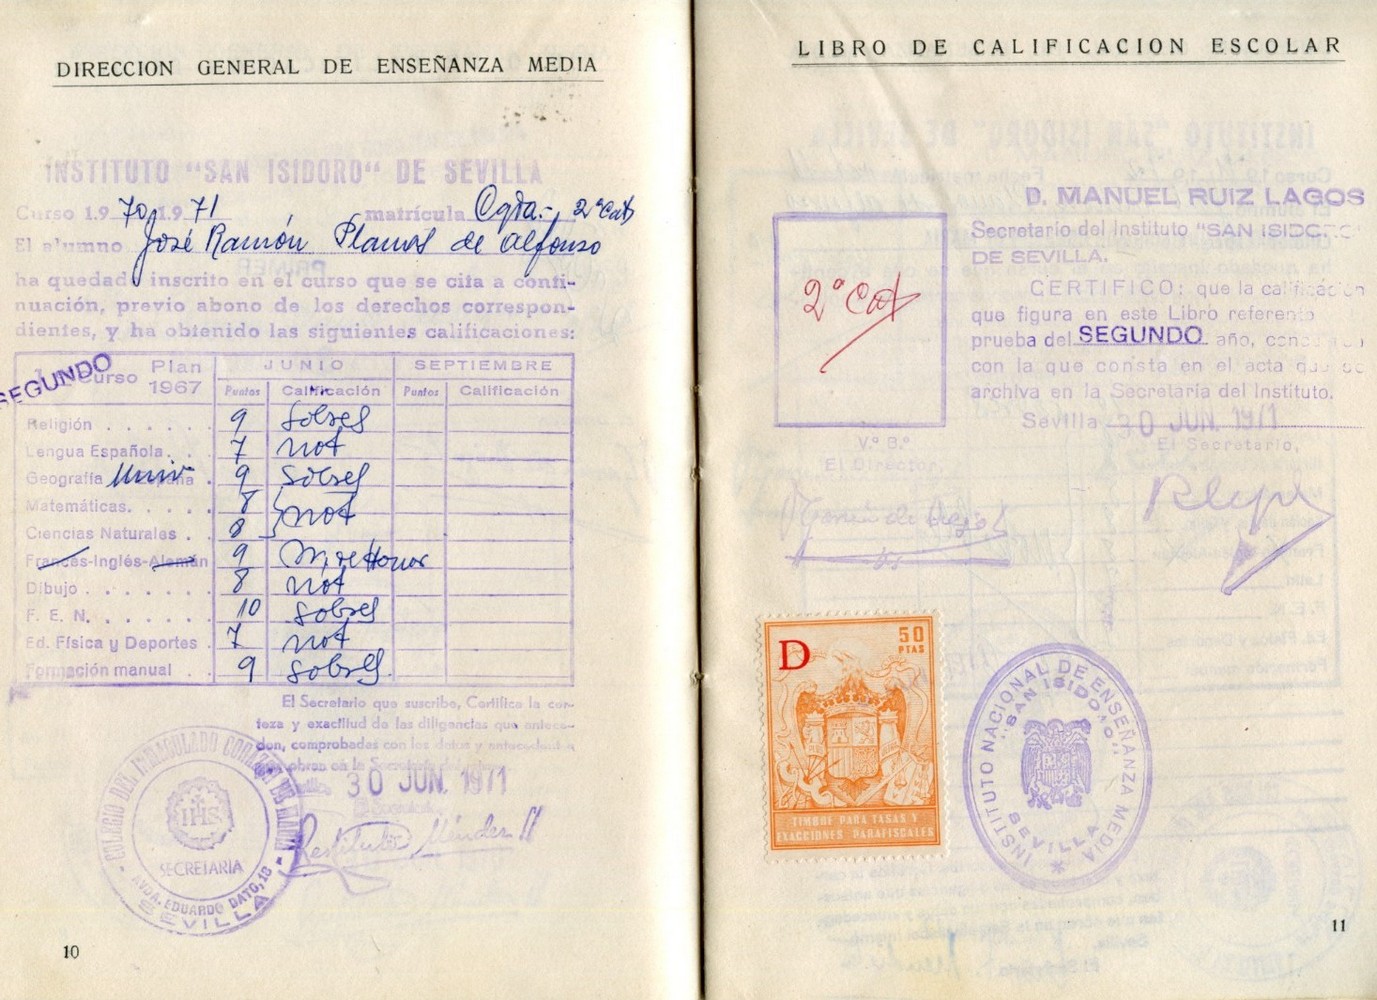 DIRECCION GENERAL DE ENSEÑANZA MEDIA
INSTITUTO "SAN ISIDORO" DE SEVILLA
Curso 1.9 70 1.9 71 matrícula Ogda.- 2ª Cat
El alumno José Ramón Llamas de Alfonso
ha quedado inscrito en el curso que se cita a conti-
nuación, previo abono de los derechos correspon-
dientes, y ha obtenido las siguientes calificaciones:
SEGUNDO Curso Plan 1967 JUNIO SEPTIEMBRE
Puntos Calificación Puntos Calificación
Religión 9 Sobres
Lengua Española 7 not
Geografía Univ España 9 Sobres
Matemáticas 8 not
Ciencias Naturales 8
Francés-Inglés-Alemán 9 M. de Honor
Dibujo 8 not
F. E. N. 10 Sobres
Ed. Física y Deportes 7 not
Formación manual 9 Sobres
El Secretario que suscribe, Certifica la cer-
teza y exactitud de las diligencias que antece-
den, comprobadas con los datos y antecedentes
obran en la Secretaría
Sevilla 30 JUN. 1971
Restituto Méndez
COLEGIO DEL INMACULADO CORAZON DE MARIA
JHS
SECRETARIA
AVDA. EDUARDO DATO, 18
SEVILLA
10
LIBRO DE CALIFICACION ESCOLAR
2ª Cat
D. MANUEL RUIZ LAGOS
Secretario del Instituto "SAN ISIDORO"
DE SEVILLA.
CERTIFICO: que la calificación
que figura en este Libro referente
prueba del SEGUNDO año,
con la que consta en el acta que se
archiva en la Secretaría del Instituto.
Sevilla 30 JUN. 1971
V.º B.º
El Director
El Secretario,
D
50
PTAS
TIMBRE PARA TASAS Y
EXACCIONES PARAFISCALES
INSTITUTO NACIONAL DE ENSEÑANZA MEDIA
"SAN ISIDORO"
SEVILLA
11